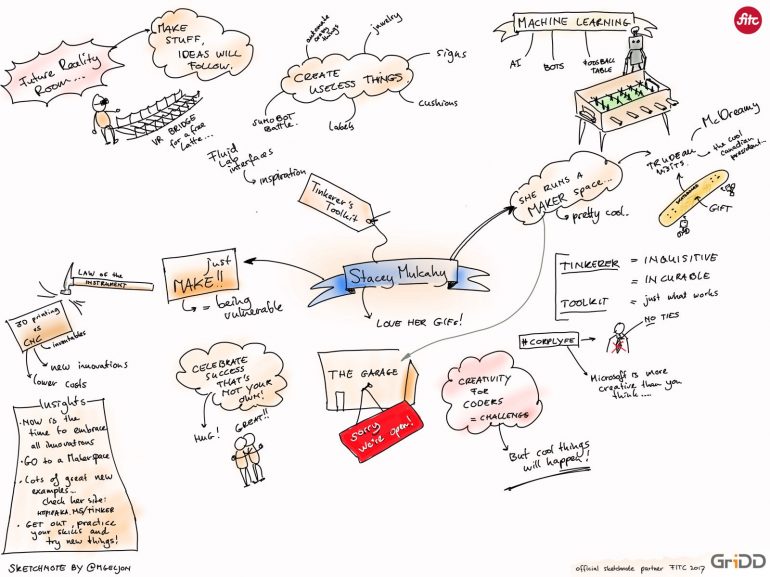 Future Reality
Room...
MAKE
STUFF,
IDEAS WILL
FOLLOW.
VR BRIDGE
for a free
Latte...
automate
things
jewelry
signs
CREATE
USELESS THINGS
cushions
labels
SUMO BOT
BATTLE.
MACHINE LEARNING
fitc
AI
BOTS
FOOSBALL
TABLE
Fluid
Lab
interfaces
inspiration
Tinkerer's
Toolkit
SHE RUNS A
MAKER space...
pretty cool.
TRUDEAU
VISITS
McDreamy
the cool
canadian
president...
GIFT
Stacey Mulcahy
LOVE HER GIFs!
just
MAKE!!
= being
vulnerable
LAW OF THE
INSTRUMENT
3D printing
vs
CNC
new innovations
lower costs
TINKERER = INQUISITIVE
= INCURABLE
TOOLKIT = just what works
NO TIES
#CORPLYFE
Microsoft is more
creative than you
think....
CELEBRATE
SUCCESS
THAT'S
NOT YOUR
OWN!
HUG!
GREAT!!
THE GARAGE
sorry
we're open!
CREATIVITY
FOR
CODERS
= CHALLENGE
But cool things
will happen!
Insights
• NOW is the
time to embrace
all innovations
• GO to a Makerspace
• Lots of great new
examples...
check her site:
• GET OUT, practice
your skills and
try new things!
SKETCHNOTE BY @MGELJON
official sketchnote partner FITC 2017
GriDD